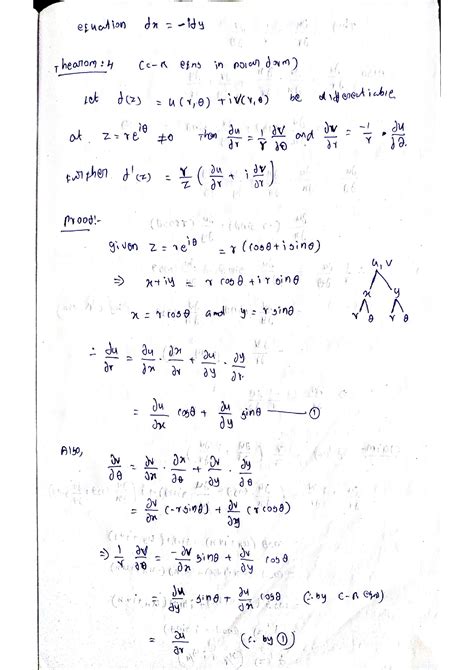 equation dx = -idy
Theorem: 4 (C-R eqns in polar form)
Let f(z) = u(r, θ) + iv(r, θ) be differentiable
at z = re^{iθ} ≠ 0 Then ∂u/∂r = 1/r ∂v/∂θ and ∂v/∂r = -1/r · ∂u/∂θ.
Further f'(z) = r/z (∂u/∂r + i ∂v/∂r)
Proof:-
given z = re^{iθ} = r (cosθ + i sinθ)
u, v
⇒ x+iy = r cosθ + i r sinθ
x y
x = r cosθ and y = r sinθ
r θ r θ
∴ ∂u/∂r = ∂u/∂x · ∂x/∂r + ∂u/∂y · ∂y/∂r
= ∂u/∂x cosθ + ∂u/∂y sinθ — ①
Also,
∂v/∂θ = ∂v/∂x · ∂x/∂θ + ∂v/∂y · ∂y/∂θ
= ∂v/∂x (-r sinθ) + ∂v/∂y (r cosθ)
⇒ 1/r ∂v/∂θ = -∂v/∂x sinθ + ∂v/∂y cosθ
= ∂u/∂y sinθ + ∂u/∂x cosθ (∵ by C-R eqns)
= ∂u/∂r (∵ by ①)